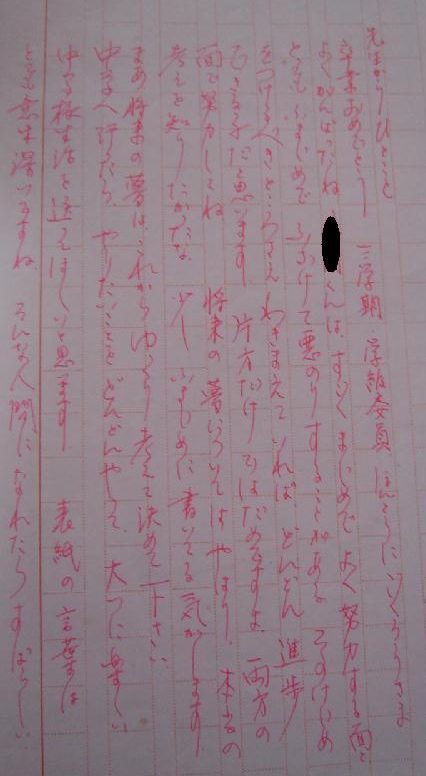 先生からひとこと
卒業おめでとう 三学期 学級委員 ほんとうにごくろうさま
よくがんばったね くんは、すごくまじめで よく努力する面と
とてもふまじめで ふざけて悪のりすることがある そのけじめ
をつけるべきところさえ わきまえていれば どんどん進歩
できる子だと思います 片方だけではだめですよ 両方の
面で努力してね 将来の夢については やはり、本当の
考えを知りたかったな 少し ふまじめに書いてる気がします
まあ将来の夢は、これからゆっくり考えて決めて下さい
中学へ行ったら、やりたいことをどんどんやって、大いに
中学校生活を送ってほしいと思います 表紙の言葉は
とても意味深いですね そんな人間になれたらすばらしい